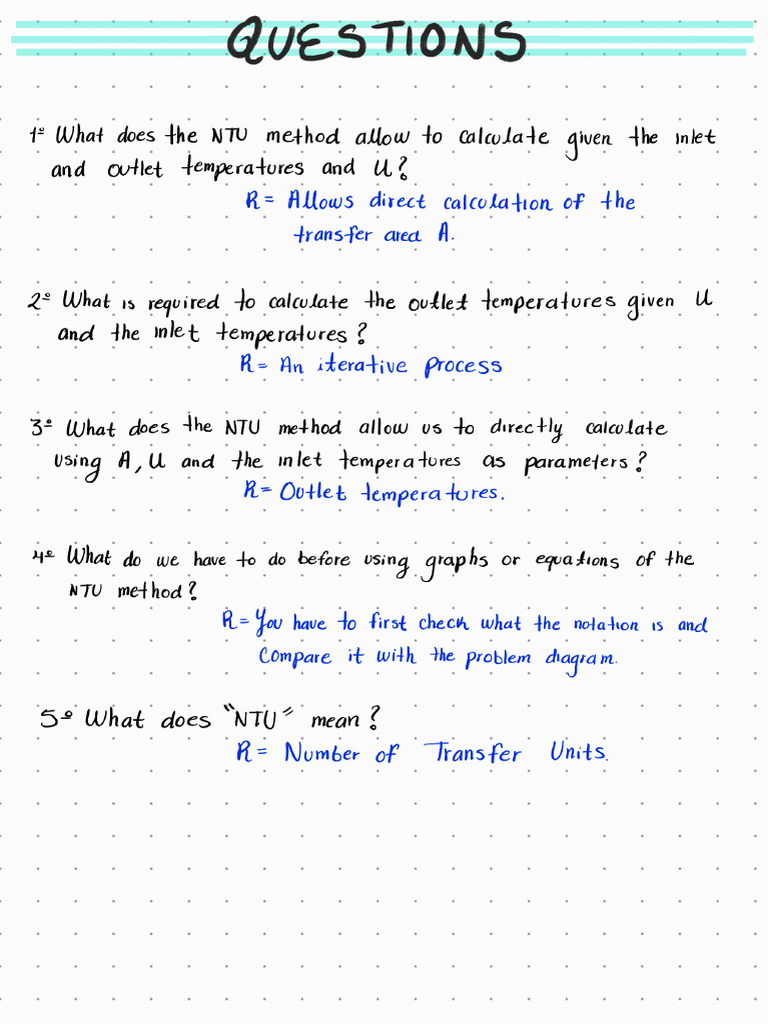 QUESTIONS
1º What does the NTU method allow to calculate given the inlet
and outlet temperatures and U?
R= Allows direct calculation of the
transfer area A.
2º What is required to calculate the outlet temperatures given U
and the inlet temperatures?
R= An iterative process
3º What does the NTU method allow us to directly calculate
using A, U and the inlet temperatures as parameters?
R= Outlet temperatures.
4º What do we have to do before using graphs or equations of the
NTU method?
R= You have to first check what the notation is and
Compare it with the problem diagram.
5º What does "NTU" mean?
R= Number of Transfer Units.